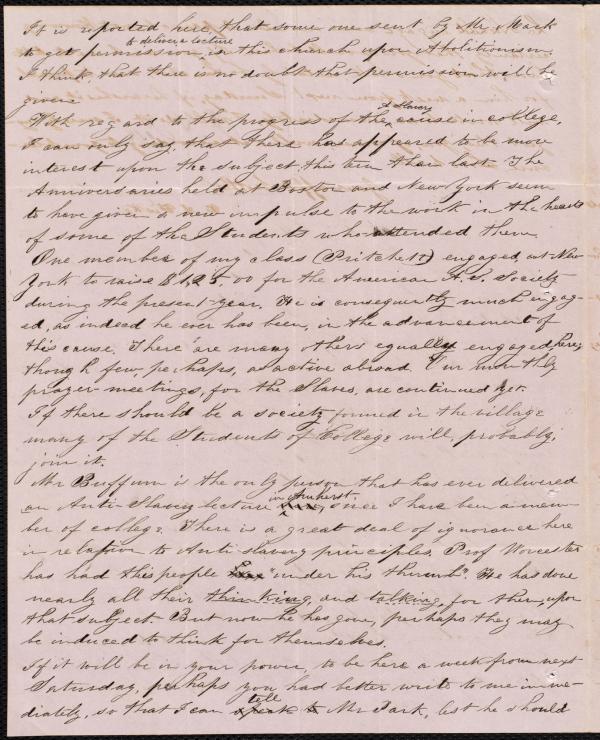 It is reported here that some one sent by Mr. Mack
to get permission, to deliver a lecture in this church upon Abolitionism.
I think, that there is no doubt that permission will be
given.
With regard to the progress of the A. Slavery cause in college,
I can only say, that there has appeared to be more
interest upon the subject, this term than last. The
Anniversaries held at Boston and New York seem
to have given a new impulse to the work in the hearts
of some of the Students who attended them.
One member of my class (Pritchett) engaged, at New
York to raise $125.00 for the American A. S. Society
during the present year. He is consequently much engag-
ed, as indeed he ever has been, in the advancement of
this cause. There are many others equally engaged here,
though few, perhaps, as active abroad. Our monthly
prayer-meetings, for the Slaves, are continued yet.
If there should be a society formed in the village
many of the Students of College will, probably,
join it.
Mr Buffum is the only person that has ever delivered
an Anti-Slavery lecture in Amherst, since I have been a mem-
ber of college. There is a great deal of ignorance here
in relation to Anti-slavery principles. Prof Worcester
has had this people "under his thumb". He has done
nearly all their thinking, and talking, for them, upon
that subject. But now he has gone, perhaps they may
be induced to think for themselves.
If it will be in your power, to be here a week from next
Saturday, perhaps you had better write to me imme-
diately, so that I can tell Mr Park, lest he should